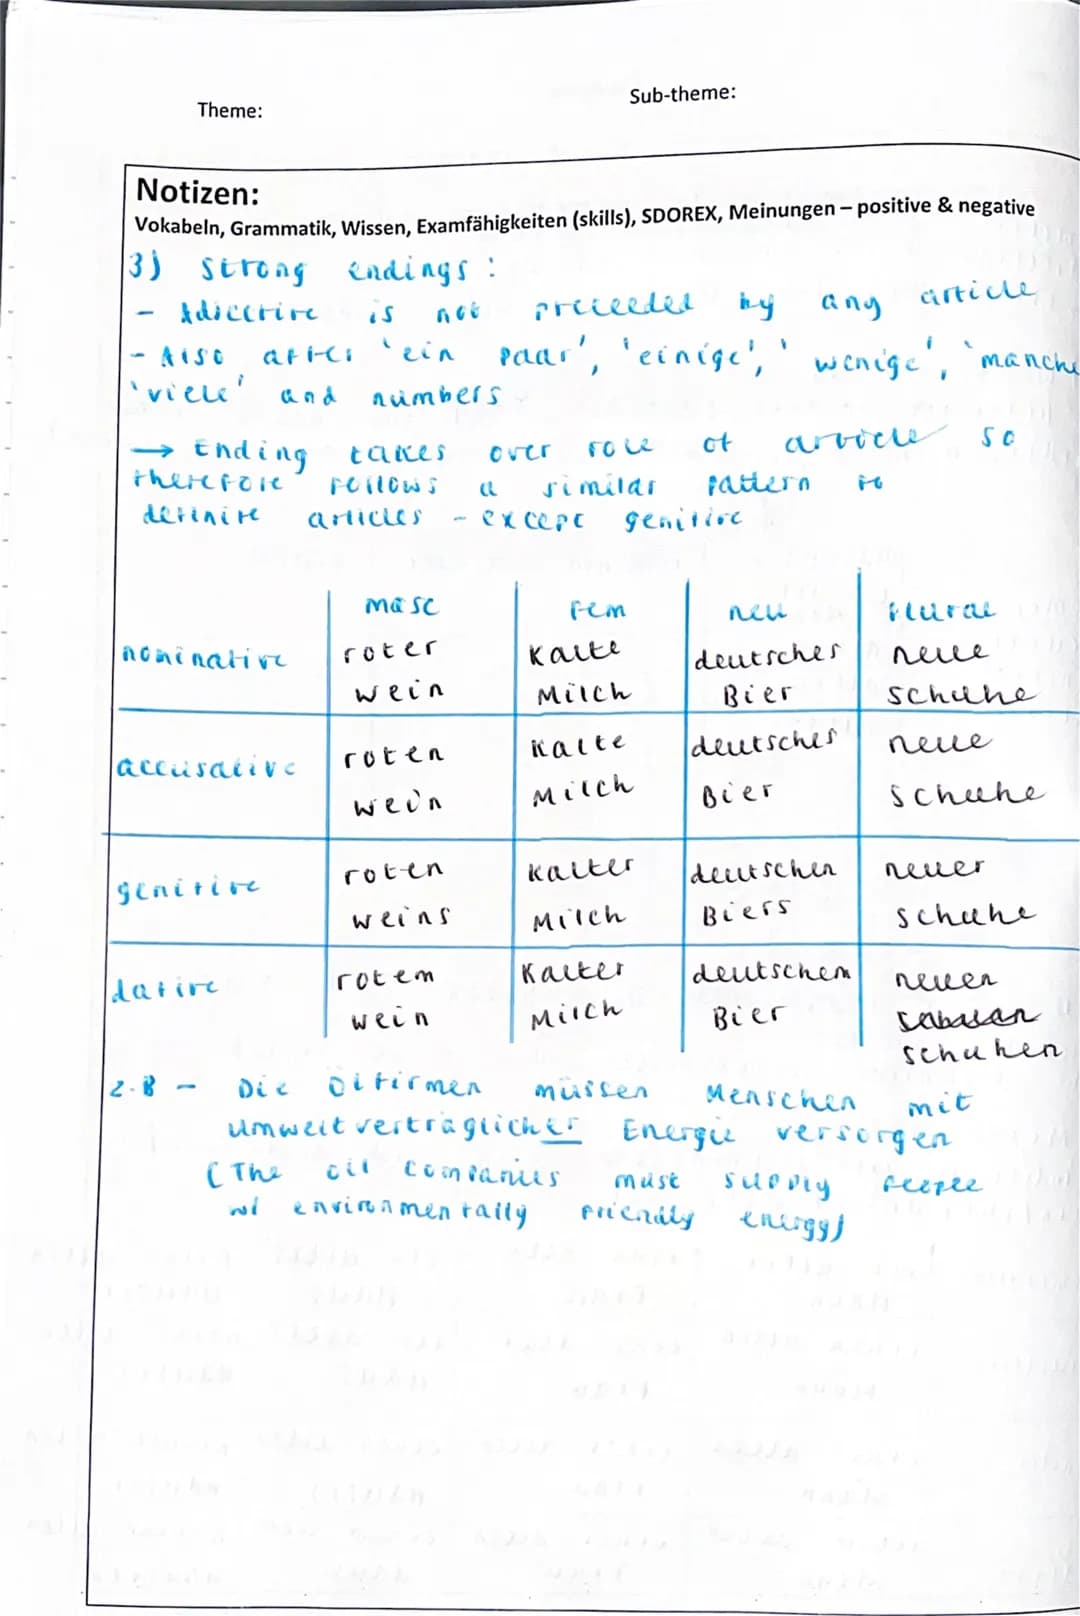 Theme:
Sub-theme:
Notizen:
Vokabeln, Grammatik, Wissen, Examfähigkeiten (skills), SDOREX, Meinungen – positive & negative
3) Strong endings:
- Adjective is not preceeded by any article
- Also after 'ein paar', 'einige', 'wenige', 'manche
'viele' and numbers
→ Ending takes over role of article so
therefore follows a similar pattern to
definite articles - except genitive
masc fem neu plural
nominative roter kalte deutsches neue
wein Milch Bier schuhe
accusative roten kalte deutsches neue
wein Milch Bier schuhe
genitive roten kalter deutschen neuer
weins Milch Biers schuhe
dative rotem kalter deutschem neuen
wein Milch Bier
schuhen
z.B - Die Ölfirmen müssen Menschen mit
umweltverträglicher Energie versorgen
(The oil companies must supply people
w/ environmentally friendly energy)